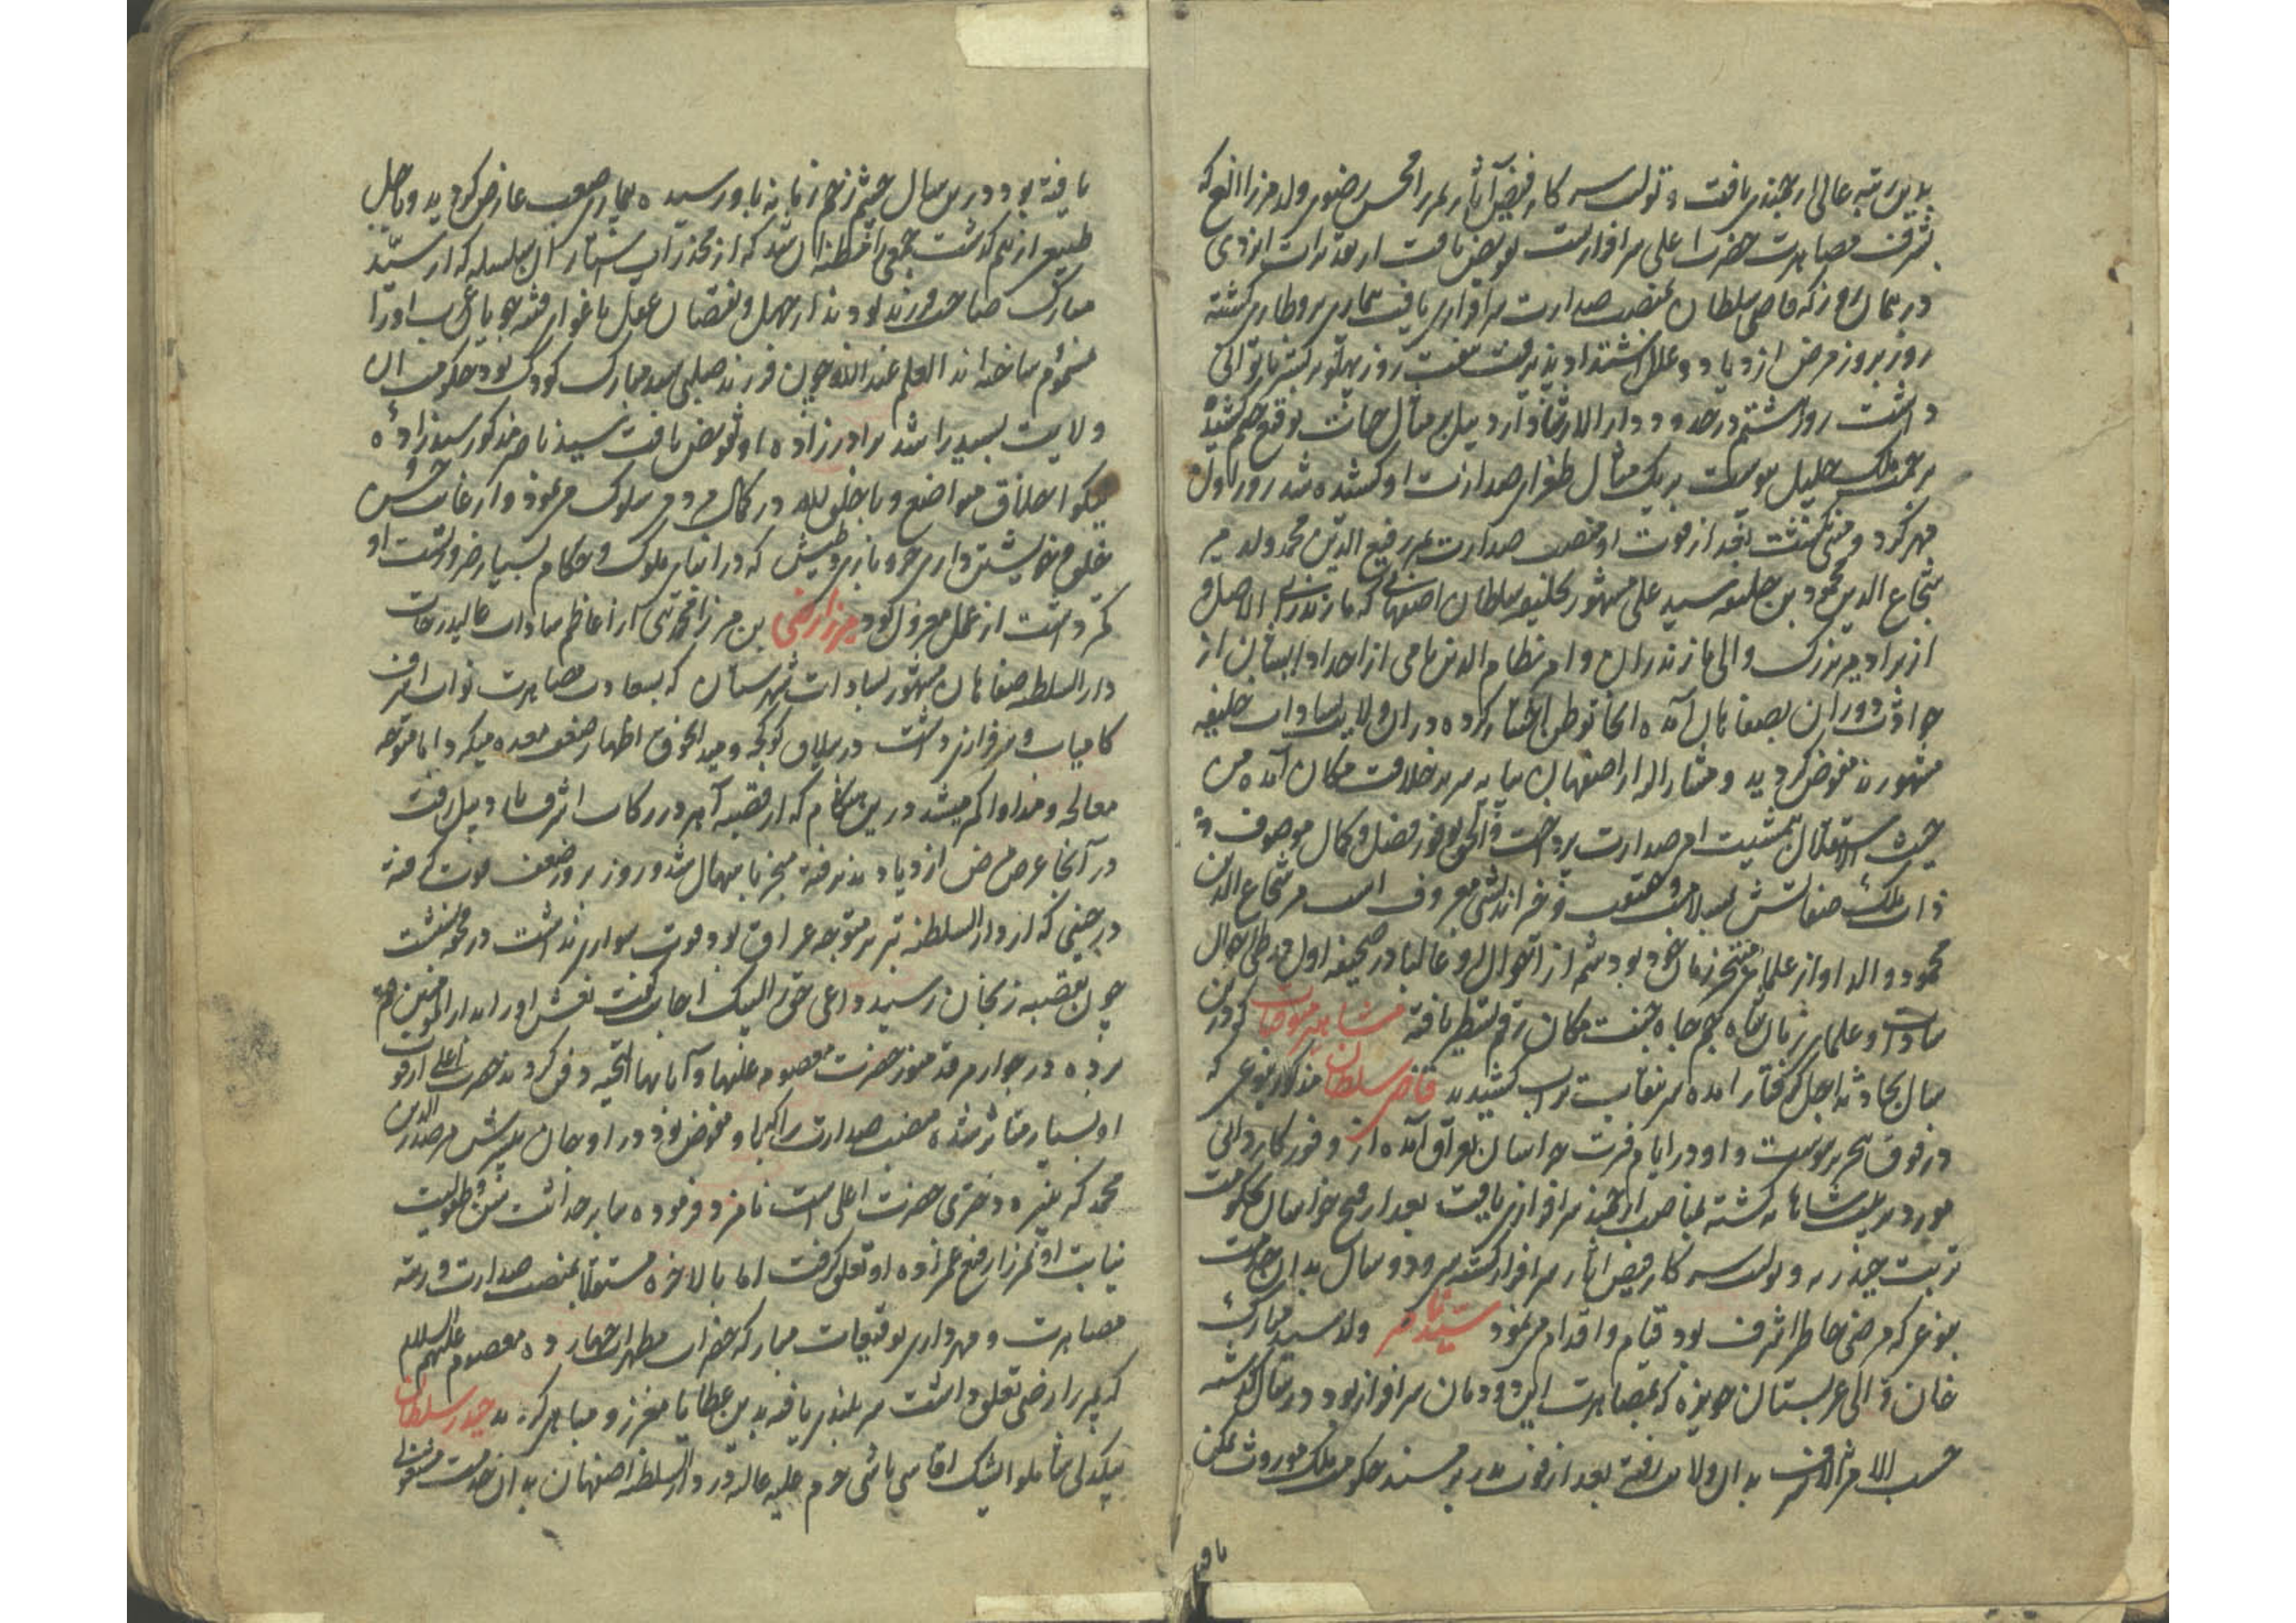 بدین رتبه عالی ارجمندی یافت و تولیت سرکار فیض آثار بمیرزا محسن رضوی ولد میرزا الغ که
بشرف مصاهرت حضرت اعلی سرافرازست تفویض یافت از تقدیرات ایزدی
در همان روز که قاضی سلطان بمنصب صدارت سرافرازی یافت بیماری برو طاری گشته
روز بروز مرض ازدیاد و علل اشتداد پذیرفت هفت روز پهلو بر بستر ناتوانی
داشت روز هشتم در حدود دار الارشاد اردبیل بر مثال حیاتش توقیع ختم کشیده
برحمت ملک جلیل پیوست بر یک مثال طغرای صدارت او کشیده شد روز اول
مهر کرد و منشی نوشت بعد از فوت او منصب صدارت بمیر رفیع الدین محمد ولد میر
شجاع الدین محمود بن خلیفه سید علی مشهور بخلیفه سلطان اصفهانی که مازندرانی الاصل و
از نژاد میر بزرگ والی مازندران و امیر نظام الدین نامی از اجداد ایشان از
حوادث دوران بصفاهان آمده آنجا توطن اختیار کرده در آن ولایت بسادات خلیفه
مشهورند مفوض گردید و مشار الیه از اصفهان بپایه سریر خلافت مکان آمده من
حیث الاستقلال بتمشیت امر صدارت پرداخت والحق بوفور فضل و کمال موصوف و
ذات ملک صفاتش بسلامت و خیر اندیشی معروف است میر شجاع الدین
محمود والد او از علمای متبحر زمان خود بود شمه از احوال او غالبا در صحیفه اول در طی احوال
سادات و علمای زمان شاه جم جاه جنت مکان رقم تسطیر یافته مشاهیر متوفیات که درین
سال بحادثه اجل گرفتار آمده سر بنقاب تراب کشیدند قاضی سلطان مذکور بنوعی که
در فوق تحریر پیوست و او در ایام فترت خراسان بعراق آمده از وفور کاردانی
مورد تربیت شاهانه گشته بمناصب ارجمند سرافرازی یافت بعد از فتح خراسان بحکومت
تربت حیدریه و تولیت سرکار فیض آثار سرافراز گشته سی و دو سال بدان خدمت
بنوعی که مرضی خاطر اشرف بود قیام و اقدام می نمود سید ناصر ولد سید مبارک
خان والی عربستان حویزه که بمصاهرت این دودمان سرافراز بود در سال گذشته
حسب الامر الاشرف بدان ولایت رفته بعد از فوت پدر بر مسند حکومت ملک موروث تمکن
یافته
یافته بود درین سال چشم زخم زمانه باو رسیده بیماری صعب عارض گردید و باجل
طبیعی از هم گذشت جمعی را مظنه آن شد که از مخدرات استار آن سلسله که از سید
مبارک صاحب فرزند بودند از جهل و نقصان عقل باغوای فتنه جویان عرب او را
مسموم ساخته اند العلم عند الله چون فرزند صلبی سید مبارک کودک بود حکومت آن
ولایت بسید راشد برادر زاده او تفویض یافت سید ناصر مذکور سید زاده
نیکو اخلاق متواضع و با خلق الله در کمال مردمی سلوک می نمود و از غایت حسن
خلق و خویشتن داری خود بازی و طیش که در ابنای ملوک و حکام بسیار ضرورتست او
کمتر داشت از عمل معزول بود میرزا رضی بن میرزا محمد تقی که از اعاظم سادات عالیدرجات
دار السلطنه صفاهان مشهور بسادات شهرستان که بسعادت مصاهرت نواب اشرف
کامیاب و سرافرازی داشت در ییلاق کوکجه و میدانجوق اظهار ضعف معده میکرد اما متوجه
معالجه و مداوا کم میشد درین هنگام که از قصبه آهر در رکاب اشرف باردبیل رفت
در آنجا عرض مرض ازدیاد پذیرفته منجر باسهال شد و روز بروز ضعف قوت گرفته
در حینی که از دار السلطنه تبریز متوجه عراق بود قوت سواری نداشت در محفه نشست
چون بقصبه زنجان رسید داعی حق را لبیک اجابت گفت نعش او را بدار المومنین قم
برده در جوار مرقد منور حضرت معصومه علیها و آبائها التحیه دفن کردند حضرت اعلی از فوت
او بسیار متاثر شده منصب صدارت را که باو مفوض بود در او جان بپسرش میر صدر الدین
محمد که نبیره دختری حضرت اعلی است نامزد فرموده بنا بر حداثت سن و طفولیت
نیابت او بمیرزا رفیع عمزاده او تعلق گرفت اما بالاخره مستقلا بمنصب صدارت و رتبه
مصاهرت و مهرداری توقیعات مبارکه حضرات مطهرات چهارده معصوم علیهم السلام
که بمیرزا رضی تعلق داشت سربلندی یافته بدین عطایا معزز و مباهی گردید حیدر سلطان
بیکدلی شاملو ایشک آقاسی باشی حرم علیه عالیه در دار السلطنه اصفهان بدان خدمت مشغولی